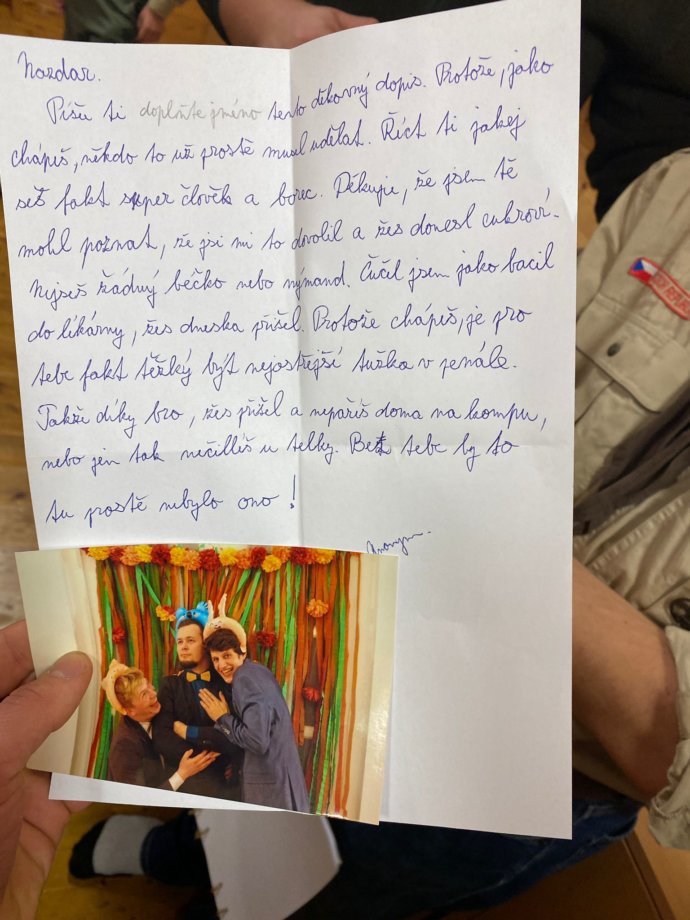 Nazdar.
Píšu ti doplňte jméno tento děkovný dopis. Protože, jako
chápiš, někdo to už prostě musel udělat. Říct ti jakej
seš fakt super člověk a borec. Děkuju, že jsem tě
mohl poznat, že jsi mi to dovolil a žes donesl cukroví.
Nejseš žádný béčko nebo nýmand. Čučel jsem jako bacil
do likárny, žes dneska přišel. Protože chápiš, je pro
tebe fakt těžký být nejostřejší tužka v penále.
Takže díky bro, žes přišel a nepaříš doma na kompu,
nebo jen tak nečilliš u telky. Bez tebe by to
tu prostě nebylo ono!
Anonym